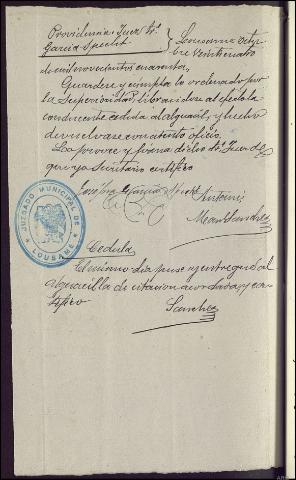 Providencia: Juez Sr.
García Specht
Lousame Octu-
bre veinticuatro
de mil novecientos cuarenta,
Guárdese y cúmpla lo ordenado por
la Superioridad, líbrandose al efecto la
conducente cédula al alguacil, y hecho
devuélvase con atento oficio.
Lo proveo y firma dicho Sr. Juez de
que yo Secretario certifico
García Specht Antonio
Sanchez
JUZGADO MUNICIPAL DE
LOUSAME
Cedula
El mismo dia puse y entregué al
alguacil la de citacion acordada y cer-
tifico
Sanchez